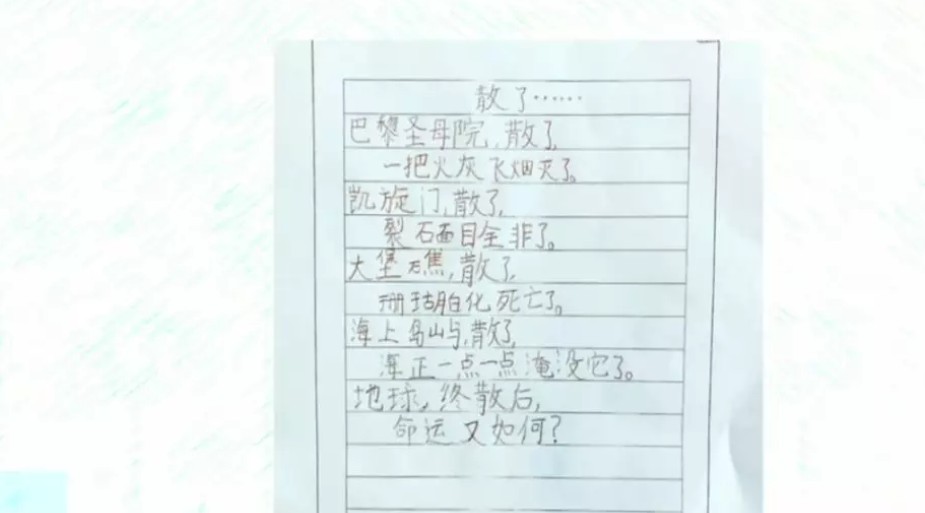 散了……
巴黎圣母院,散了,
一把火灰飞烟灭了。
凯旋门,散了,
裂石面目全非了。
大堡礁,散了,
珊瑚白化死亡了。
海上岛屿,散了,
海正一点一点淹没它了。
地球,终散后,
命运又如何?